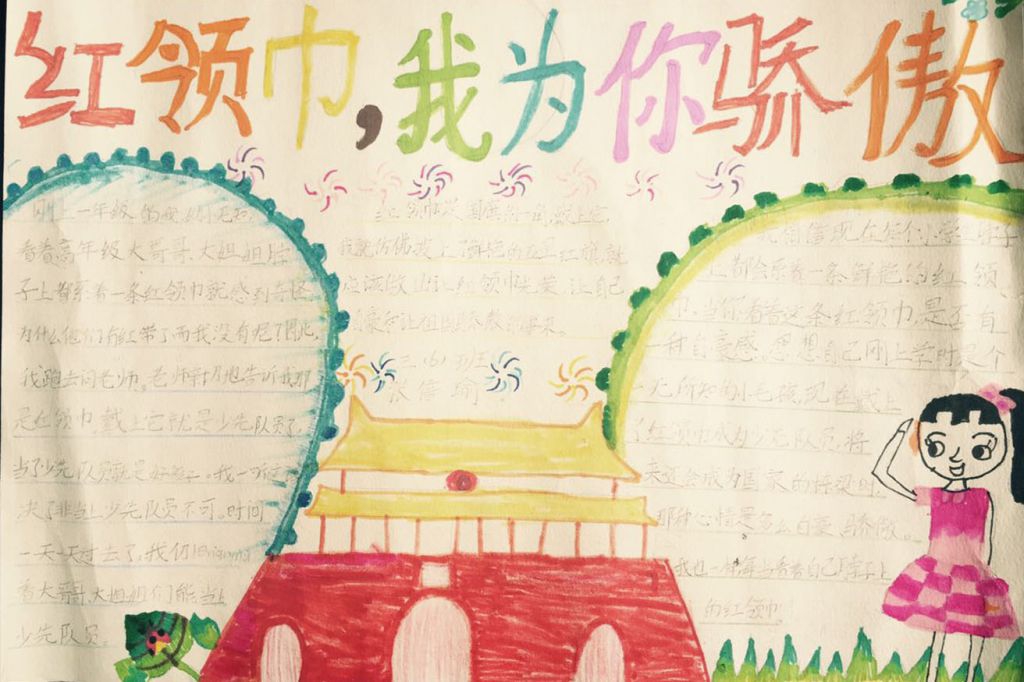 红领巾,我为你骄傲
刚上一年级的
看着高年级大哥哥、大姐姐脖
子上都系着一条红领巾就感到奇怪
为什么他们有红带了而我没有呢?因此
我跑去问老师。老师告诉我那
是红领巾戴上它就是少先队员了,
当了少先队员就是好孩子。我一听
决了非当上少先队员不可。时间
一天一天过去了,我们
看大哥哥、大姐姐们能当上
少先队员。
国旗的一角,戴上它,
我就仿佛披上了鲜艳的五星红旗,就
应该做出让红领巾光荣,让自己
自豪和让祖国骄傲的事来。
三(6)班
瑜
我相信现在每个小学生脖子
上都会系着一条鲜艳的红领
巾,当你看着这条红领巾,是否有
一种自豪感,思想自己刚上学时是个
一无所知的小毛孩,现在戴上
了红领巾成为少先队员,将
来还会成为国家的栋梁时,
那种心情是多么自豪、骄傲。
我也一样每当看着自己脖子上
的红领巾